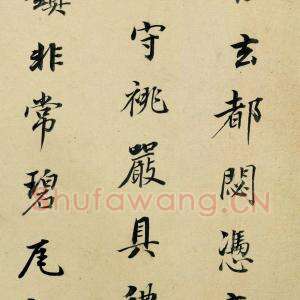 玄都閟憑
守祧嚴具禮
鎮非常碧尾
shufawang.CN